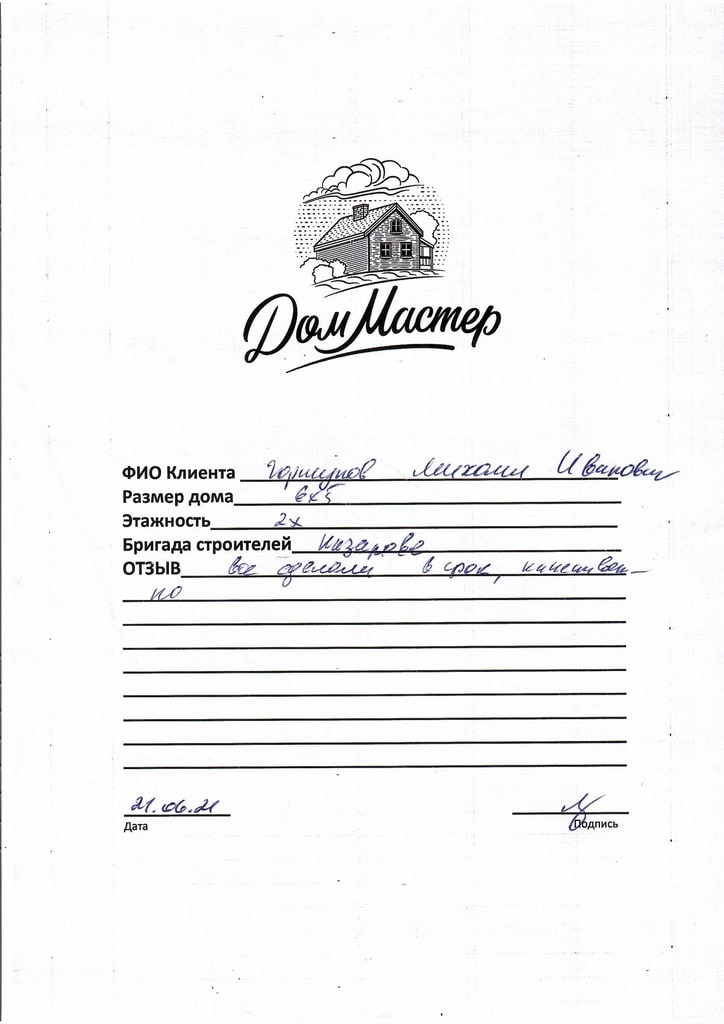 ДомМастер
ФИО Клиента Михаил Иванович
Размер дома 6х5
Этажность 2х
Бригада строителей Назарова
ОТЗЫВ все сделали в срок, качествен-
но
21.06.21
Дата
Подпись